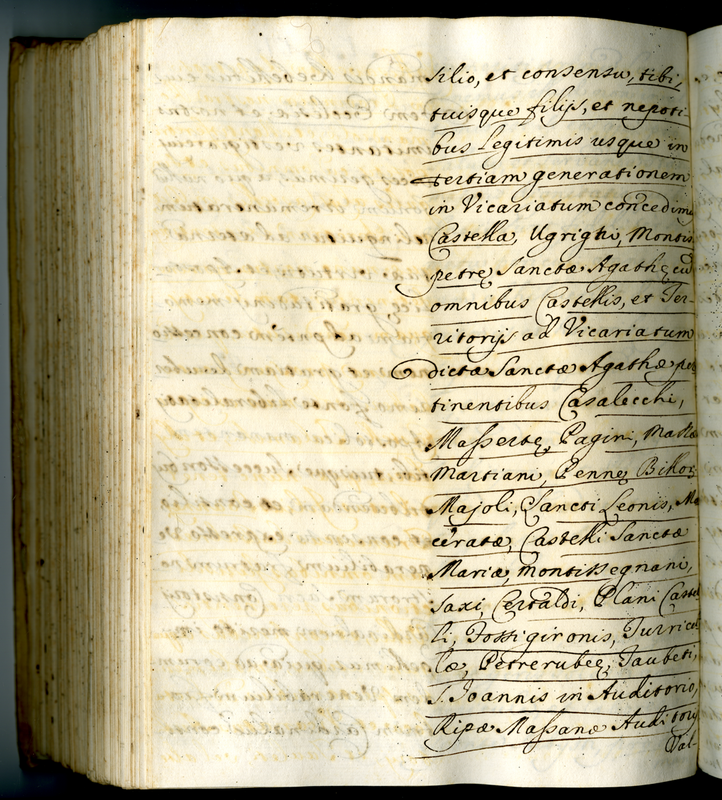 silio, et consensu, tibi,
tuisque filijs, et nepoti-
bus Legitimis usque in
tertiam generationem
in Vicariatum concedimus
Castella, Ugrighi, Montis
petrę Sanctæ Agathę, cū
omnibus Castellis, et Ter-
ritorijs ad Vicariatum
dictæ Sanctæ Agathæ per
tinentibus Casalecchi,
Massertę, Pagini, Mastæ
Martiani, Pennę Billor,
Majoli, Sancti Leonis, Ma
ceratæ, Castelli Sanctæ
Mariæ, Montissegnani,
Saxi, Certaldi, Plani Castel
li, Tossigironis, Turricel
læ, Petrerubeę, Taubeti,
S. Joannis in Auditorio,
Ripæ Massanæ Auditorij
Val-